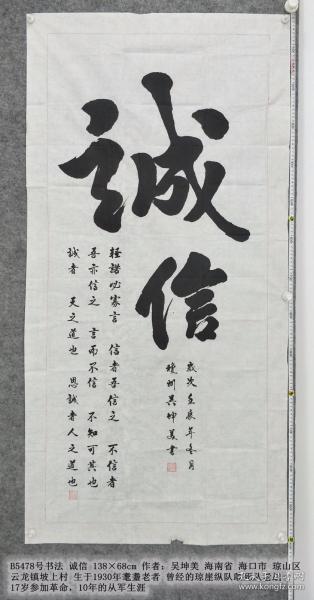 誠信
輕諾必寡言 信者吾信之 不信者
吾亦信之 言而不信 不知可其也
誠者 天之道也 思誠者人之道也
歲次壬辰年冬月
瓊州吴坤美書
B5478号书法 诚信 138×68cm 作者：吴坤美 海南省 海口市 琼山区
云龙镇坡上村 生于1930年耄耋老者 曾经的琼崖纵队敢死队老战士
17岁参加革命，10年的从军生涯